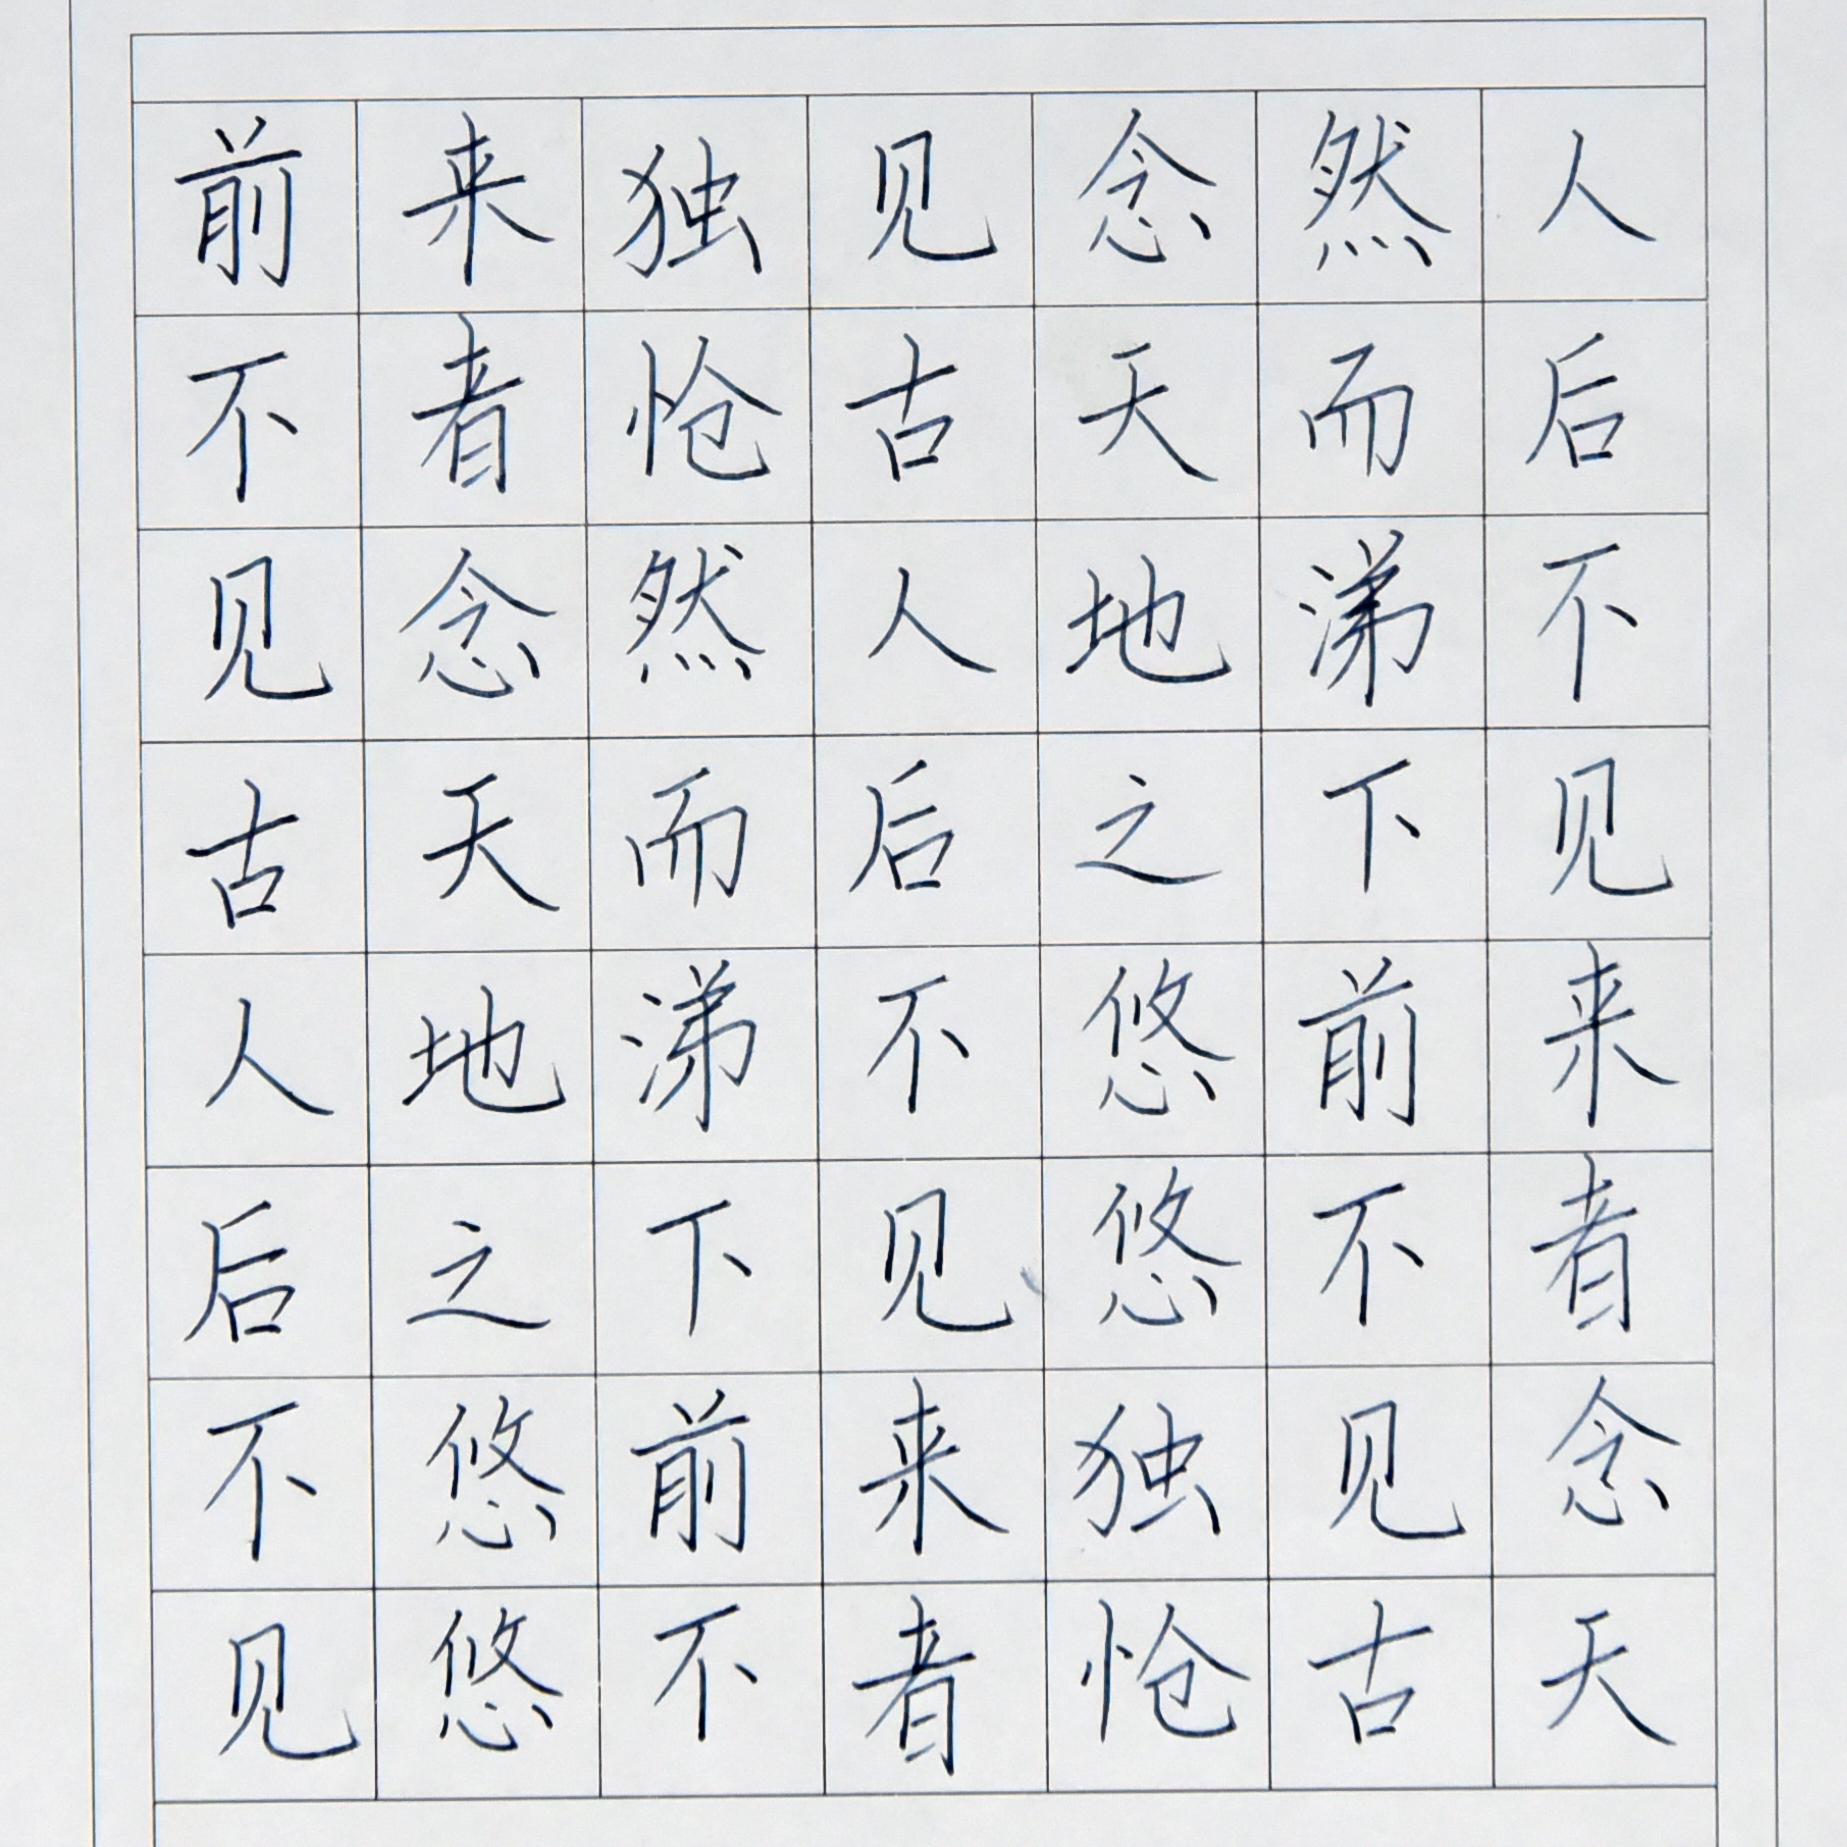 前不见古人后不见
来者念天地之悠悠
独怆然而涕下前不
见古人后不见来者
念天地之悠悠独怆
然而涕下前不见古
人后不见来者念天